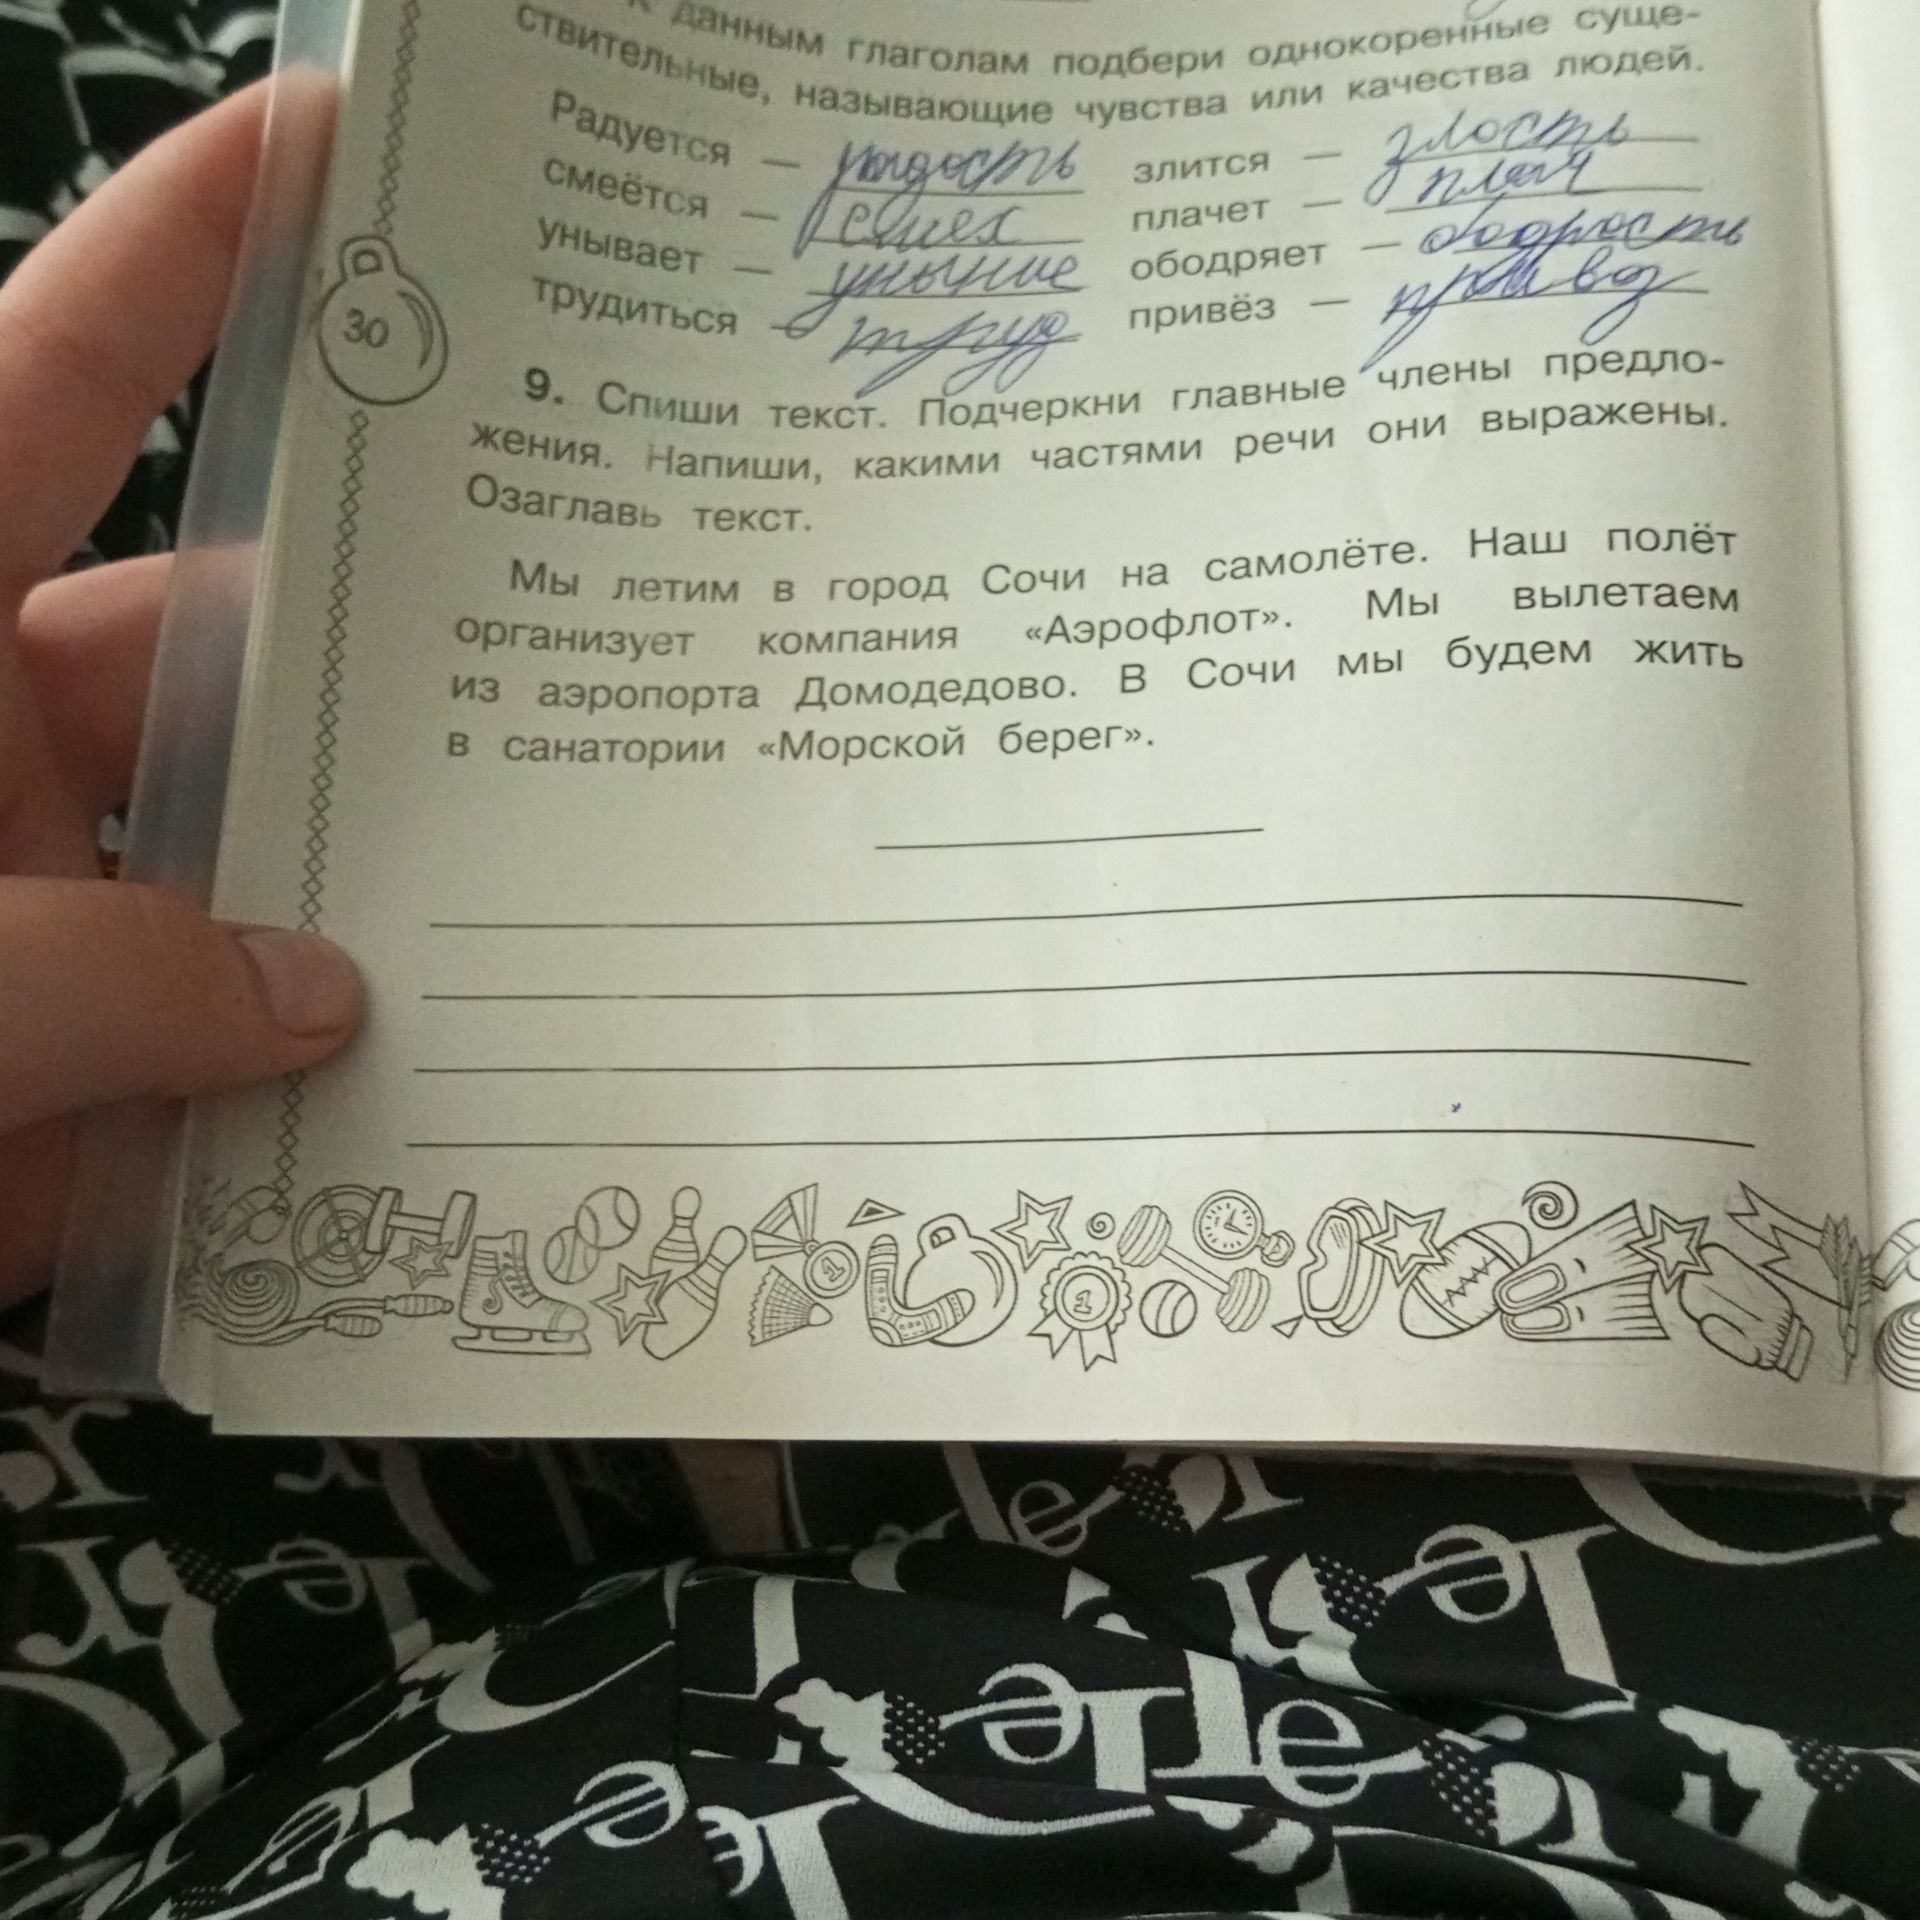 К данным глаголам подбери однокоренные суще-
ствительные, называющие чувства или качества людей.
Радуется — радость злится — злость
смеётся — смех плачет — плач
унывает — уныние ободряет — бодрость
трудиться — труд привёз — привоз
30
9. Спиши текст. Подчеркни главные члены предло-
жения. Напиши, какими частями речи они выражены.
Озаглавь текст.
Мы летим в город Сочи на самолёте. Наш полёт
организует компания «Аэрофлот». Мы вылетаем
из аэропорта Домодедово. В Сочи мы будем жить
в санатории «Морской берег».
1
1